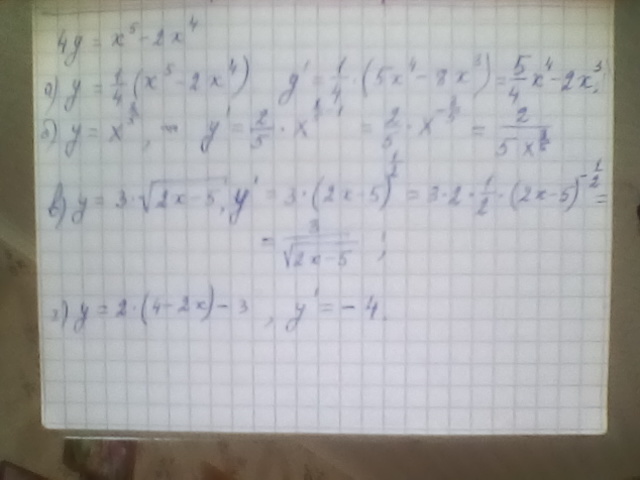 4y = x⁵ - 2x⁴
а) y = 1/4 (x⁵ - 2x⁴) y' = 1/4 · (5x⁴ - 8x³) = 5/4 x⁴ - 2x³;
б) y = x^, y' = 2/5 · x^ = 2/5 · x^ = 2/5x^
в) y = 3·√(2x-5), y' = 3·(2x-5)^1/2 = 3·2·1/2·(2x-5)^-1/2 =
= 3/√(2x-5) ;
г) y = 2·(4-2x)-3 , y' = -4.